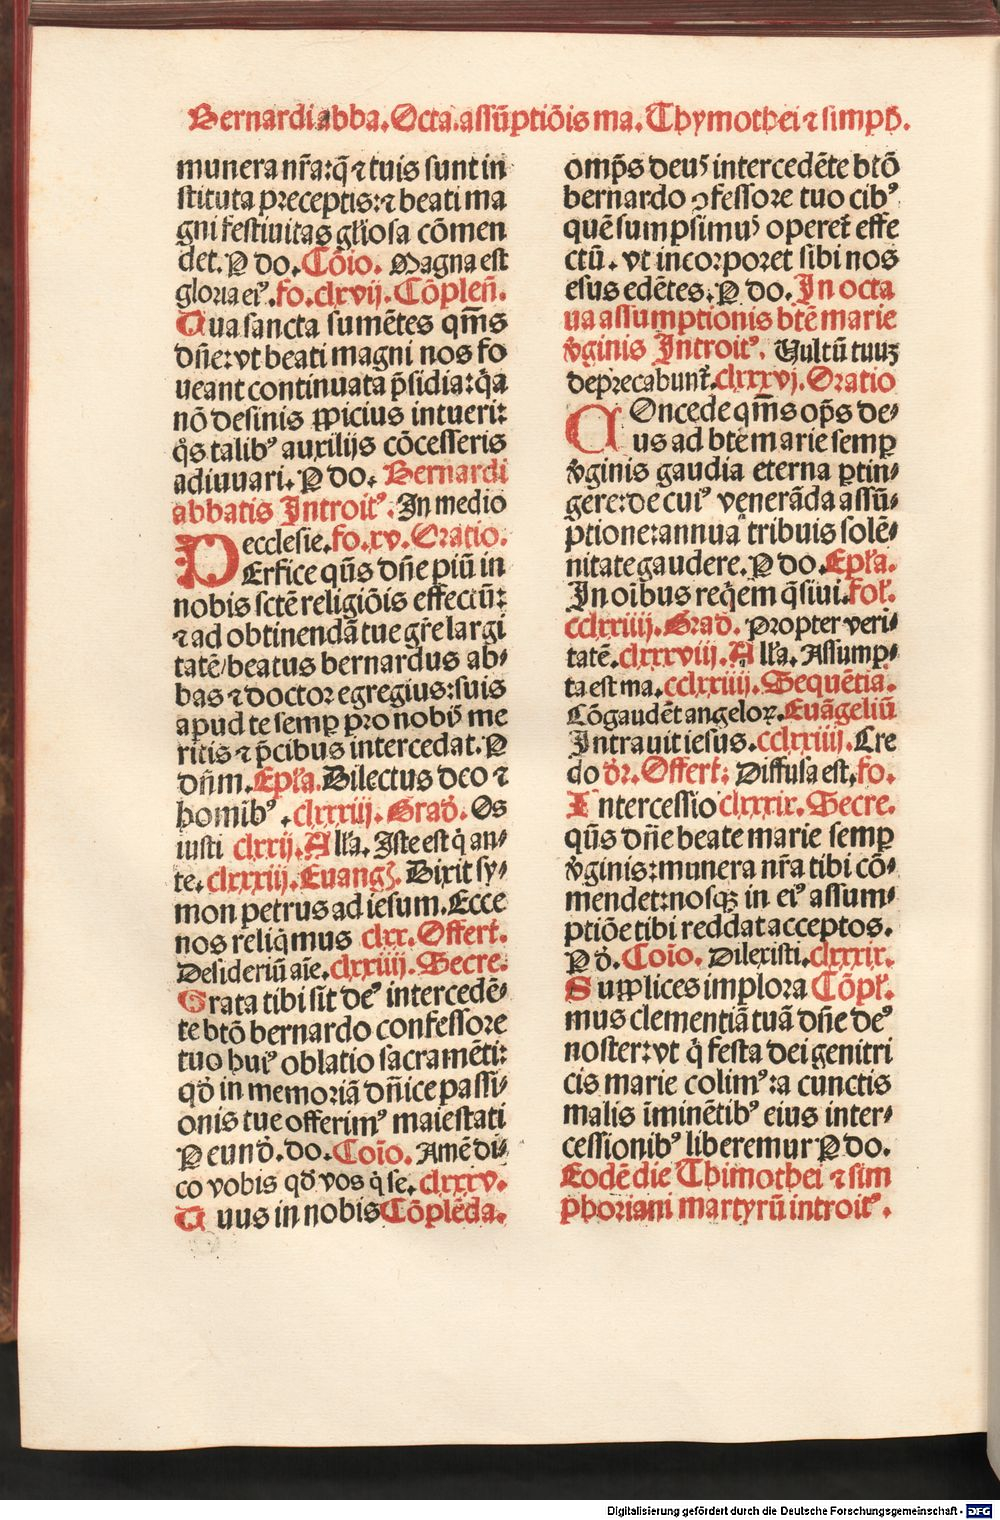 Bernardi abba. Octa. assūptiōis ma. Thymothei ⁊ simpħ.
munera nr̄a: q̄ ⁊ tuis sunt in
stituta preceptis: ⁊ beati ma
gni festiuitas gl̄iosa cōmen
det. P do. Cōio. Magna est
gloria eiꝰ. fo. clxvij. Cōplen̄.
Tua sancta sumētes qm̄s
dn̄e: vt beati magni nos fo
ueant continuata p̄sidia: q̄a
nō desinis ꝓpicius intueri:
q̊s talibꝰ auxilijs cōcesseris
adiuuari. P do. Bernardi
abbatis Introitꝰ. In medio
ecclesie. fo. xv. Oratio.
PErfice qūs dn̄e piū in
nobis sctē religiōis effectū:
⁊ ad obtinendā tue gr̄e largi
tatē/ beatus bernardus ab⸗
bas ⁊ doctor egregius: suis
apud te semꝑ pro nobiꝰ me
ritis ⁊ p̄cibus intercedat. P
dn̄m. Epl̄a. Dilectus deo ⁊
homibꝰ. clxxxiij. Grad̄. Os
iusti clxxij. All̄a. Iste est q̇ an⸗
te. clxxxiij. Euangꝫ. Dixit sy⸗
mon petrus ad iesum. Ecce
nos reliq̇mus clxx. Offert̄.
Desideriū aīe. clxxiiij. Secre.
Grata tibi sit deꝰ intercedē⸗
te btō bernardo confessore
tuo huiꝰ oblatio sacramēti:
qd̄ in memoriā dn̄ice passi⸗
onis tue offerimꝰ maiestati
P eund̄. do. Coīo. Amē di⸗
co vobis qd̄ vos q̇ se. clxxxv.
Uuus in nobis Cōplēda.
omp̄s deuꝰ intercedēte btō
bernardo ꝯfessore tuo cibꝰ
quē sumpsimuꝰ operet̄ effe
ctū. vt incorporet sibi nos
esus edētes. P do. In octa
ua assumptionis btē marie
v̄ginis Introitꝰ. Uultū tuuꝫ
deprecabunt̄. clxxxvj. Oratio
COncede qm̄s op̄s de⸗
us ad btē marie semꝑ
v̄ginis gaudia eterna ꝑtin⸗
gere: de cuiꝰ venerāda assū⸗
ptione: annua tribuis solē⸗
nitate gaudere. P do. Epl̄a.
In oībus req̇em q̄siui. fol̄.
cclxxiiij. Grad̄. Propter veri⸗
tatē. clxxxviij. All̄a. Assump⸗
ta est ma. cclxxiiij. Sequētia.
Cōgaudēt angeloꝝ. Euāgeliū
Intrauit iesus. cclxxiiij. Cre
do dr̄. Offert̄: Diffusa est. fo.
Intercessio clxxxix. Secre.
qūs dn̄e beate marie semꝑ
v̄ginis: munera nr̄a tibi cō⸗
mendet: nosqꝫ in eiꝰ assum⸗
ptiōe tibi reddat acceptos.
P d̄. Coīo. Dilexisti. clxxxix.
Supplices implora Cōpl̄.
mus clementiā tuā dn̄e deꝰ
noster: vt q̇ festa dei genitri
cis marie colimꝰ: a cunctis
malis īminētibꝰ eius inter⸗
cessionibꝰ liberemur P do.
Eodē die Thimothei ⁊ sim
phoriani martyrū introitꝰ.
Digitalisierung gefördert durch die Deutsche Forschungsgemeinschaft - DFG